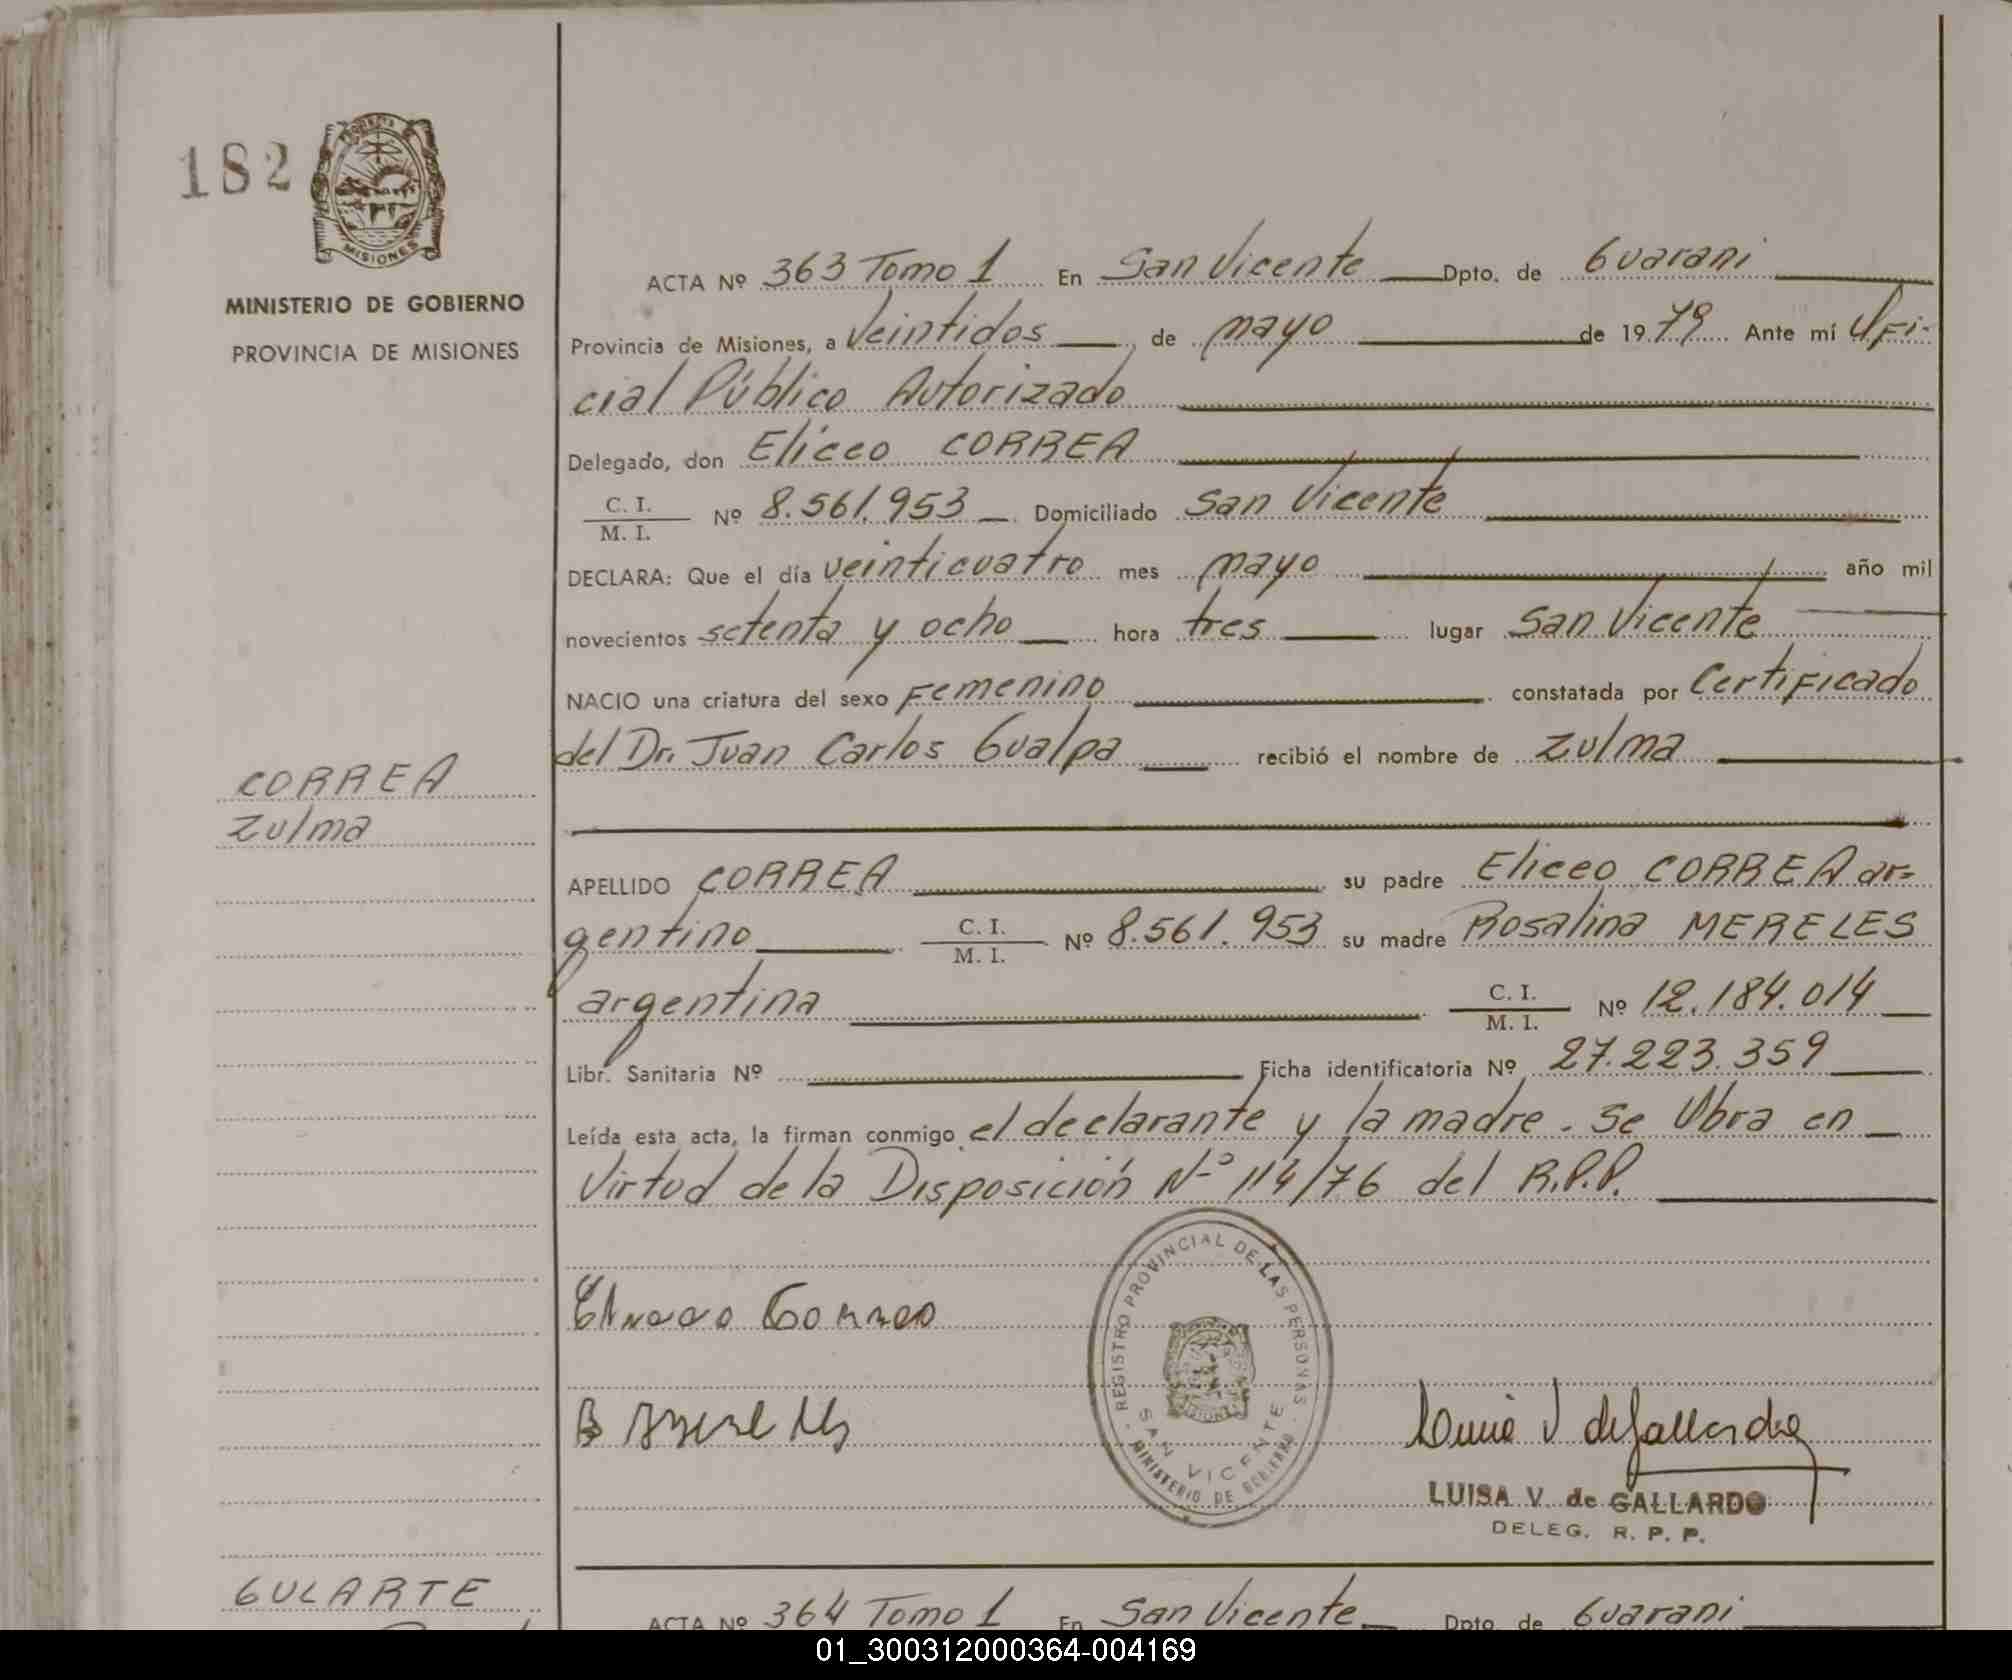 182
PROVINCIA
MISIONES
MINISTERIO DE GOBIERNO
PROVINCIA DE MISIONES
ACTA Nº 363 Tomo 1 En San Vicente Dpto. de Guarani
Provincia de Misiones, a Veintidos de mayo de 1979 Ante mí Ofi-
cial Público Autorizado
Delegado, don Eliceo CORREA
C. I.
M. I. Nº 8.561.953 Domiciliado San Vicente
DECLARA: Que el día veinticuatro mes mayo año mil
novecientos setenta y ocho hora tres lugar San Vicente
NACIO una criatura del sexo Femenino constatada por Certificado
del Dr. Juan Carlos Gualpa recibió el nombre de Zulma
CORREA
Zulma
APELLIDO CORREA su padre Eliceo CORREA ar=
gentino C. I. M. I. Nº 8.561.953 su madre Rosalina MERELES
argentina C. I. M. I. Nº 12.184.014
Libr. Sanitaria Nº Ficha identificatoria Nº 27.223.359
Leída esta acta, la firman conmigo el declarante y la madre. Se Obra en
Virtud de la Disposición Nº 114/76 del R.P.P.
REGISTRO PROVINCIAL DE LAS PERSONAS
SAN VICENTE
MINISTERIO DE GOBIERNO
LUISA V. de GALLARDO
DELEG. R. P. P.
GULARTE
ACTA Nº 364 Tomo 1 En San Vicente Dpto. de Guarani
01_300312000364-004169